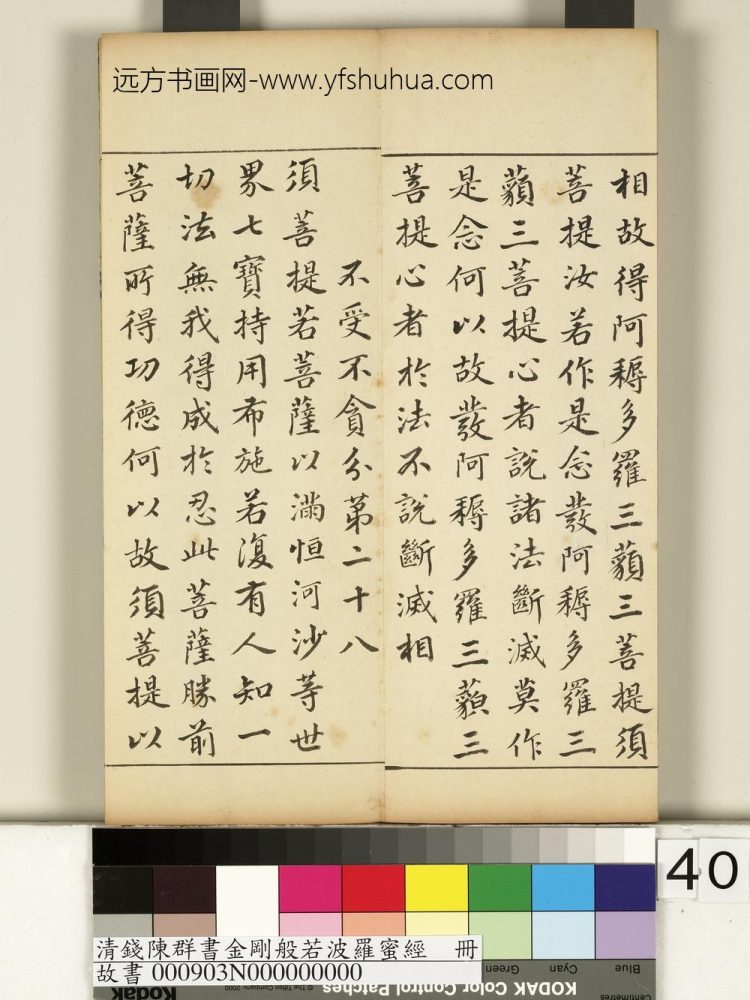 远方书画网-www.yfshuhua.com
相故得阿耨多羅三藐三菩提須
菩提汝若作是念發阿耨多羅三
藐三菩提心者說諸法斷滅莫作
是念何以故發阿耨多羅三藐三
菩提心者於法不說斷滅相
不受不貪分第二十八
須菩提若菩薩以滿恒河沙等世
界七寶持用布施若復有人知一
切法無我得成於忍此菩薩勝前
菩薩所得功德何以故須菩提以
40
清錢陳群書金剛般若波羅蜜經 冊
故書000903N000000000
© The Tiffen Company, 2000
Green
Cyan
Blue
Kodak
KODAK Color Control Patches
Centimetres